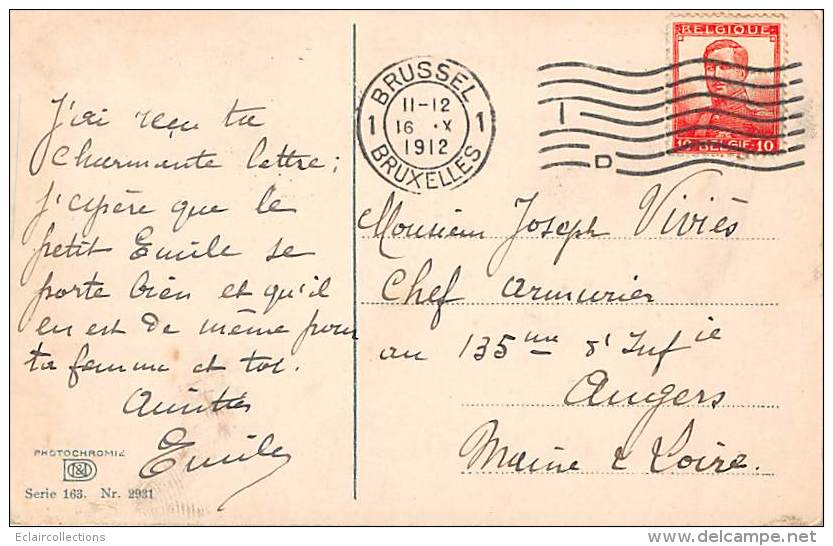 J'ai reçu ta
charmante lettre;
j'espère que le
petit Emile se
porte bien et qu'il
en est de même pour
ta femme et toi.
Amitiés
Emile
PHOTOCHROMIE
D&D
Serie 163. Nr. 2931
BRUSSEL
11-12
1 16 X 1
1912
BRUXELLES
BELGIQUE
10 BELGIE 10
I
D
Monsieur Joseph Viviès
Chef armurier
au 135me d'Infie
Angers
Maine & Loire.
Eclaircollections
delcampe.net